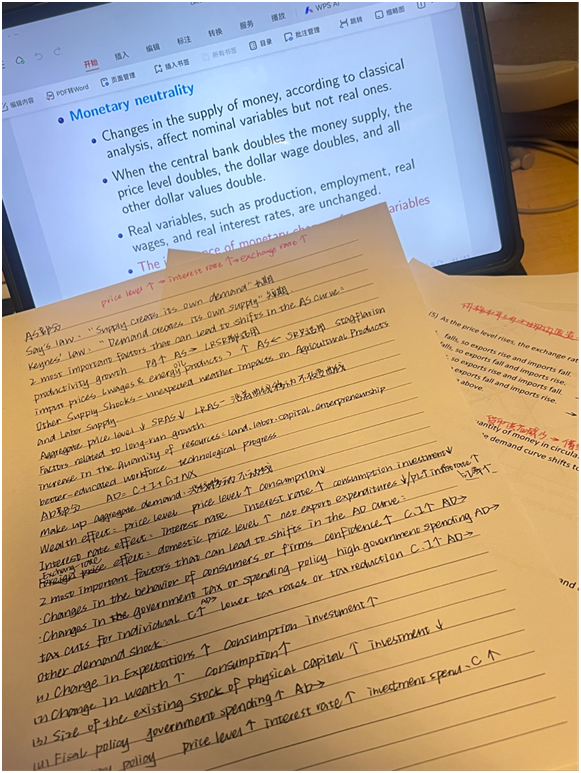 开始
插入
编辑
标注
转换
服务
播放
WPS AI
编辑内容
PDF转Word
页面管理
插入书签
所有书签
目录
批注管理
跳转
缩略图
• Monetary neutrality
• Changes in the supply of money, according to classical
analysis, affect nominal variables but not real ones.
• When the central bank doubles the money supply, the
price level doubles, the dollar wage doubles, and all
other dollar values double.
• Real variables, such as production, employment, real
wages, and real interest rates, are unchanged.
• The ce of monetary variables
price level ↑ → interest rate ↑ → exchange rate ↑
AS部分
Say's law: "Supply creates its own demand" 长期
Keynes' law: "Demand creates its own supply" 短期
2 most important factors that can lead to shifts in the AS curve:
productivity growth P↑ AS→ LRSR都适用
input prices (wages & energy oil products) ↑ AS← SR适用 stagflation
Other Supply Shocks - unexpected weather impacts on Agricultural Products
and Labor Supply
Aggregate price level ↓ SRAS↓ LRAS-
Factors related to long-run growth:
increase in the Quantity of resources: land. labor. capital. enterpreneurship
better-educated workforce technological progress
AD部分 AD = C+I+G+NX
Make up aggregate demand:
Wealth effect: price level price level ↑ consumption↓
Interest rate effect: Interest rate interest rate ↑ consumption investment↓
Exchange rate effect: domestic price level ↑ net export expenditures ↓
2 most important factors that can lead to shifts in the AD curve:
·Changes in the behavior of consumers or firms confidence ↑ C.I↑ AD→
·Changes in the government tax or spending policy high government spending AD→
tax cuts for individual C↑ AD→ lower tax rates or tax reduction C.I↑ AD→
Other demand shock:
(1) Change in Expectations ↑ consumption investment ↑
(2) Change in wealth ↑ consumption↑
(3) Size of the existing stock of physical capital ↑ investment ↓
(4) Fisal policy government spending ↑ AD→
policy price level ↑ interest rate ↑ investment spend. C ↑
(5) As the price level rises, the exchange rat
falls, so exports rise and imports fall.
alls, so exports fall and imports rise.
exports rise and imports fall.
exports fall and imports rise.
above.
antity of money in circula
e demand curve shifts to
and